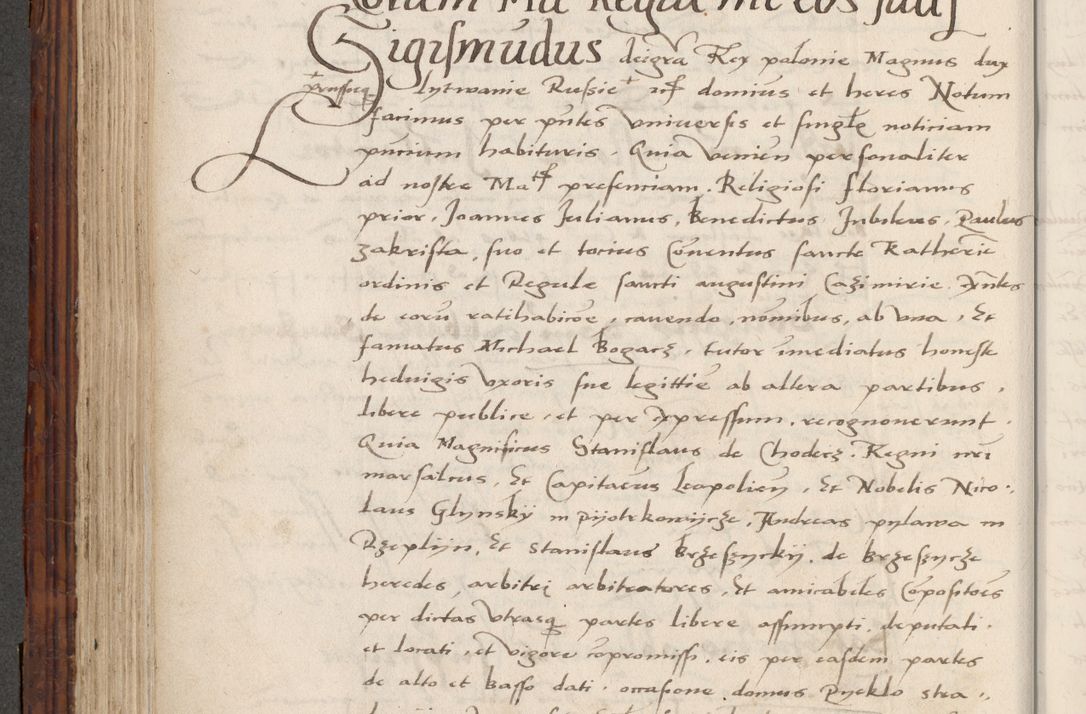 Sigismũdus dei grã Rex polonie Magnus dux
prussieqȝ Lytwanie Russie etc domiũs et heres Notum
facimus per pñtes vniuersis et singłe noticiam
pñcium habituris. Quia venien personaliter
ad nostre Matis presenciam. Religiosi florianus
prior, Joannes Julianus, Benedictus Jnboleus, Paulus
zakrista, suo et tocius Conuentus sancte Katherĩe
ordinis et Regule sancti augustini Cazimirie. Ac̃ntes
de eorũ ratihabicõe, cauendo, nõmibus, ab vna, Et
famatus Michael Bogacz, tutor imediatus honeste
heduigis vxoris sue legittiẽ ab altera partibus,
libere publice, et per expressum, recognouerunt.
Quia Magnificus Stanislaus de Chodecz. Regni nr̃i
marsalcus, Et Capitaeus Leopolieñ, Et Nobilis Nico-
laus Glynskỹ in pijotrkowijcze, Andreas pylawa in
Rzeplijn, Et Stanislaus Brzeszyckij, de Brzeszycze
heredes, arbitri arbitratores, Et amicabiles Cõpositoẽs
per dictas vtrasqȝ partes libere assumpti, deputati.
et locati, et vigore cõpromissi, eis per easdem partes
de alto et Basso dati, occasione domus Pyeklo stra-